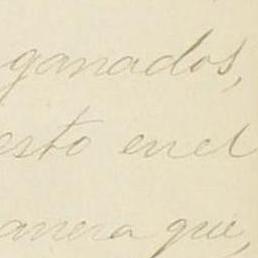 ganados,
esto en el
anera que,